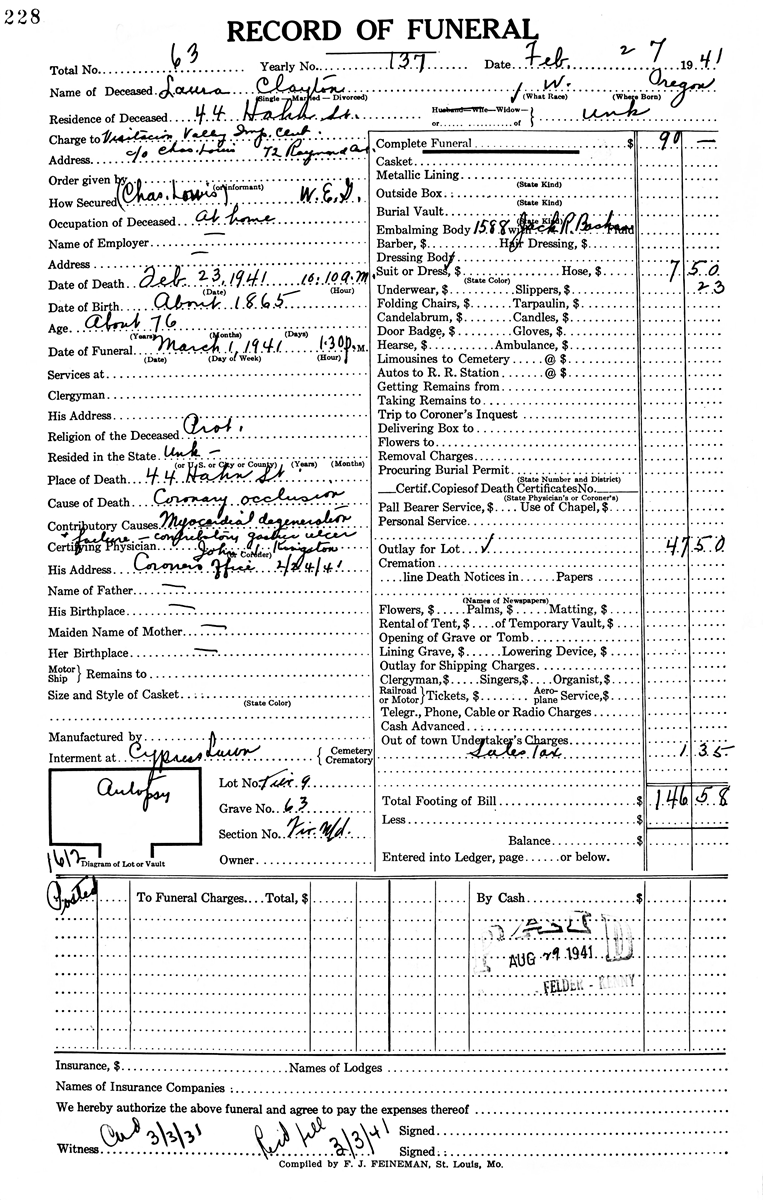 228
RECORD OF FUNERAL
Total No. 63 Yearly No. 137 Date Feb. 27 1941
Name of Deceased Laura Clayton W. Oregon
(Single—Married—Divorced) (What Race) (Where Born)
Residence of Deceased 44 Hahn St. Husband—Wife—Widow— or of } Unk
Charge to Visitacion Valley Imp. Club.
Address c/o Chas. Lowis 72 Raymond Av.
Order given by
How Secured (Chas. Lowis) (or informant) W.E.G.
Occupation of Deceased At home
Name of Employer —
Address —
Date of Death Feb 23, 1941 10:10 a.M.
(Date) (Hour)
Date of Birth About 1865
Age About 76
(Years) (Months) (Days)
Date of Funeral March 1, 1941 1:30 p.M.
(Date) (Day of Week) (Hour)
Services at
Clergyman
His Address
Religion of the Deceased Prot.
Resided in the State Unk —
(or U.S. or City or County) (Years) (Months)
Place of Death 44 Hahn St
Cause of Death Coronary occlusion
Contributory Causes Myocardial degeneration
+ failure — contributory gastric ulcer
Certifying Physician John J. Kingston
(or Coroner)
His Address Coroner's Office 2/24/41
Name of Father —
His Birthplace —
Maiden Name of Mother —
Her Birthplace —
Motor Ship } Remains to
Size and Style of Casket
(State Color)
Manufactured by
Interment at Cypress Lawn { Cemetery Crematory
Autopsy
Lot No. Tier 9
Grave No. 63
Section No. Fir Md.
Owner
1612 Diagram of Lot or Vault
Complete Funeral $ 90 —
Casket
Metallic Lining
(State Kind)
Outside Box
(State Kind)
Burial Vault
(State Kind)
Embalming Body 1588 with Jack R.
Barber, $ Hair Dressing, $
Dressing Body
Suit or Dress, $ Hose, $ 7 50
(State Color)
Underwear, $ Slippers, $ 23
Folding Chairs, $ Tarpaulin, $
Candelabrum, $ Candles, $
Door Badge, $ Gloves, $
Hearse, $ Ambulance, $
Limousines to Cemetery @ $
Autos to R. R. Station @ $
Getting Remains from
Taking Remains to
Trip to Coroner's Inquest
Delivering Box to
Flowers to
Removal Charges
Procuring Burial Permit
(State Number and District)
Certif. Copies of Death Certificates No.
(State Physician's or Coroner's)
Pall Bearer Service, $ Use of Chapel, $
Personal Service
Outlay for Lot ✓ 47 50
Cremation
line Death Notices in Papers
(Names of Newspapers)
Flowers, $ Palms, $ Matting, $
Rental of Tent, $ of Temporary Vault, $
Opening of Grave or Tomb
Lining Grave, $ Lowering Device, $
Outlay for Shipping Charges
Clergyman, $ Singers, $ Organist, $
Railroad or Motor } Tickets, $ Aero-plane Service, $
Telegr., Phone, Cable or Radio Charges
Cash Advanced
Out of town Undertaker's Charges
Sales Tax 1 35
Total Footing of Bill $ 146 58
Less $
Balance $
Entered into Ledger, page or below.
Posted To Funeral Charges Total, $ By Cash $
PAID
AUG 29 1941
FELDER - KENNY
Insurance, $ Names of Lodges
Names of Insurance Companies :
We hereby authorize the above funeral and agree to pay the expenses thereof
Witness Card 3/3/31 3/3/41 Signed
Signed
Compiled by F. J. FEINEMAN, St. Louis, Mo.